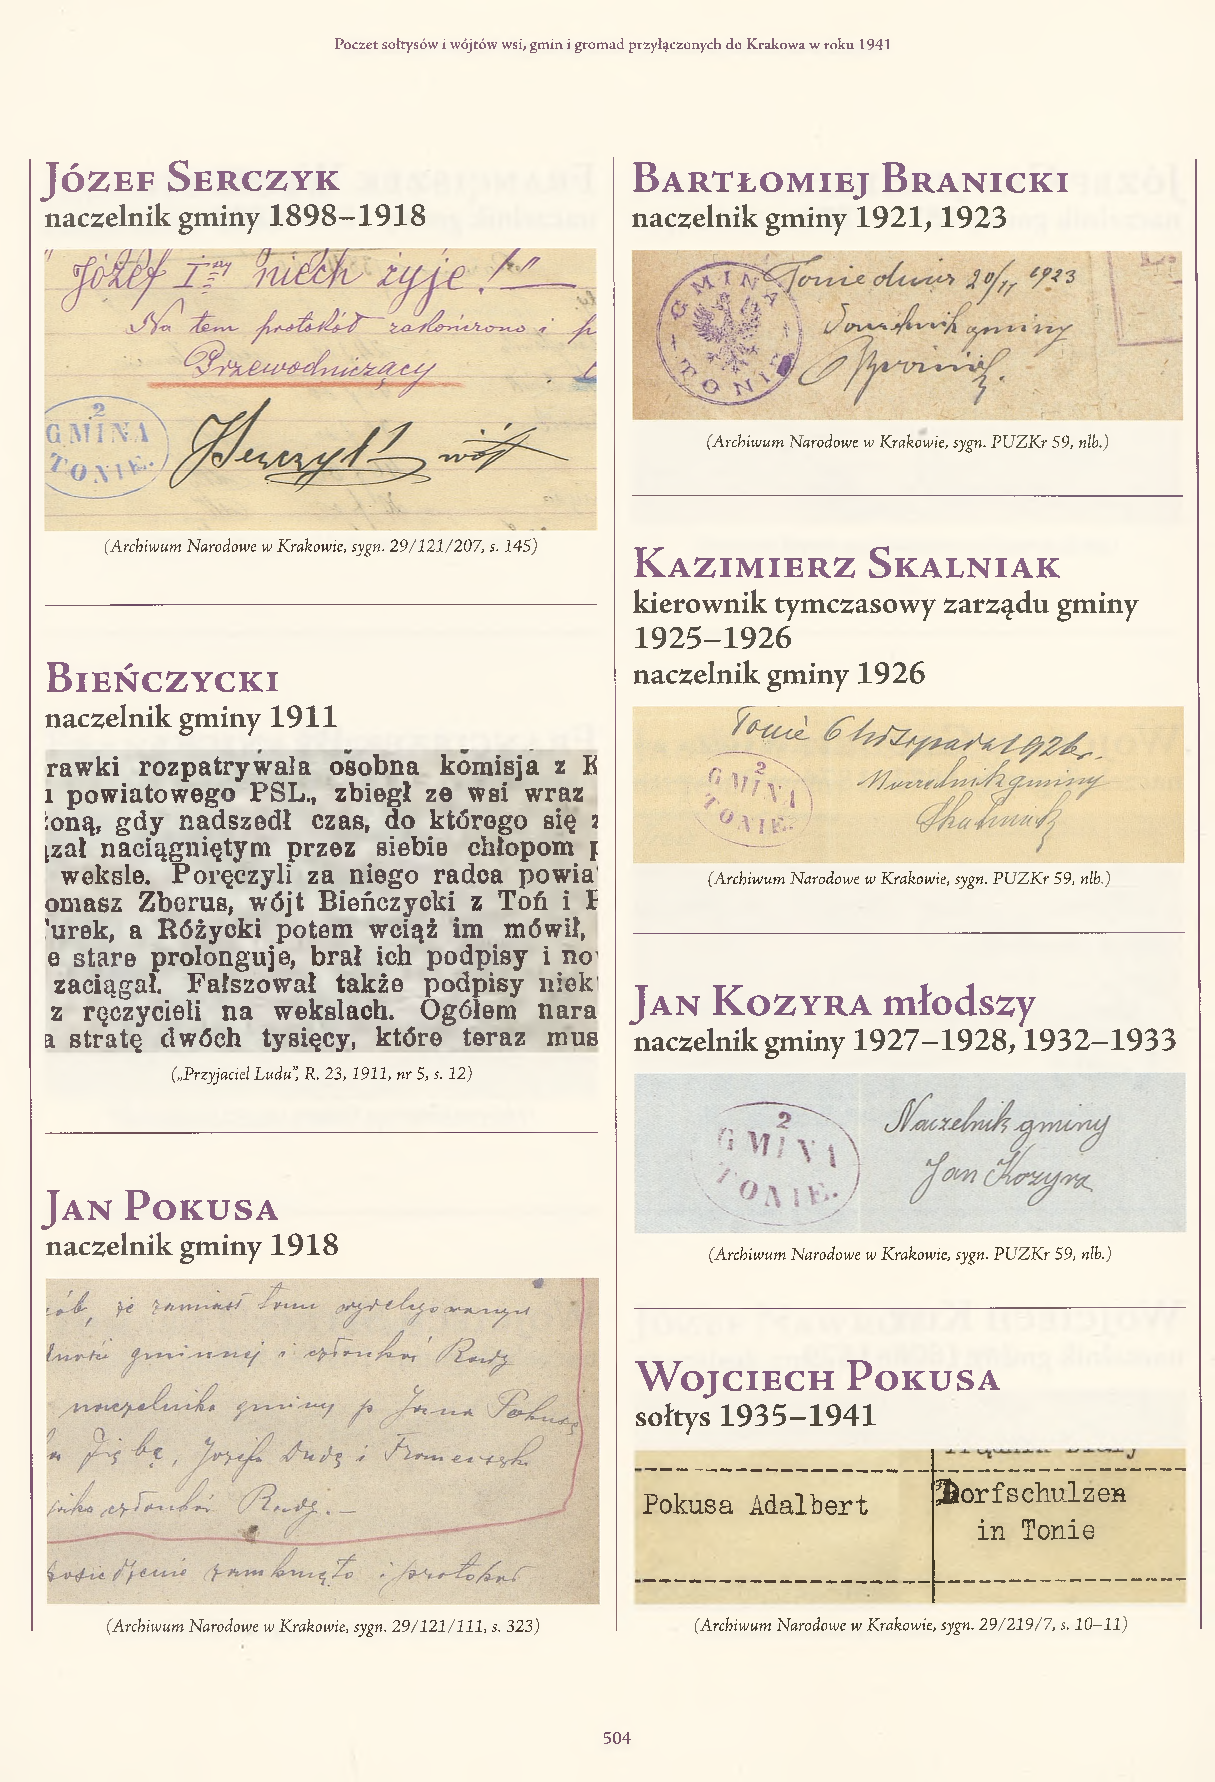 Poczet sołtysów i wójtów wsi, gmin i gromad przyłączonych do Krakowa w roku 1941
Józef Serczyk
naczelnik gminy 1898–1918
"Józef I-szy niech żyje!"
Na tem protokół zakończono i p
Przewodniczący
2
GMINA
TONIE.
Serczyk wójt
(Archiwum Narodowe w Krakowie, sygn. 29/121/207, s. 145)
Bieńczycki
naczelnik gminy 1911
rawki rozpatrywala osobna komisja z K
i powiatowego PSL., zbiegł ze wsi wraz
oną, gdy nadszedł czas, do którego się z
zał naciągniętym przez siebie chłopom p
weksle. Poręczyli za niego radca powia
omasz Zborus, wójt Bieńczycki z Toń i
urek, a Różycki potem wciąż im mówił,
e stare prolonguje, brał ich podpisy i no
zaciągał. Fałszował także podpisy niek
z ręczycieli na wekslach. Ogółem nara
a stratę dwóch tysięcy, które teraz mus
(„Przyjaciel Ludu”, R. 23, 1911, nr 5, s. 12)
Jan Pokusa
naczelnik gminy 1918
że zamiast wydelegowanych
gminnej i członków Rady
naczelnika gminy p Jana Pokusę
Ziębę, Józefa Dudę i Franciszka
członków Rady.—
posiedzenie zamknięto i protokół
(Archiwum Narodowe w Krakowie, sygn. 29/121/111, s. 323)
Bartłomiej Branicki
naczelnik gminy 1921, 1923
GMINA
TONIE
Tonie dnia 20/11 1923
Naczelnik gminy
(Archiwum Narodowe w Krakowie, sygn. PUZKr 59, nlb.)
Kazimierz Skalniak
kierownik tymczasowy zarządu gminy
1925–1926
naczelnik gminy 1926
Tonie 6 listopada 1926r.
2
GMINA
TONIE.
Naczelnik gminy
Skalniak
(Archiwum Narodowe w Krakowie, sygn. PUZKr 59, nlb.)
Jan Kozyra młodszy
naczelnik gminy 1927–1928, 1932–1933
2
GMINA
TONIE.
Naczelnik gminy
Jan Kozyra
(Archiwum Narodowe w Krakowie, sygn. PUZKr 59, nlb.)
Wojciech Pokusa
sołtys 1935–1941
Pokusa Adalbert
Dorfschulzen
in Tonie
(Archiwum Narodowe w Krakowie, sygn. 29/219/7, s. 10–11)
504